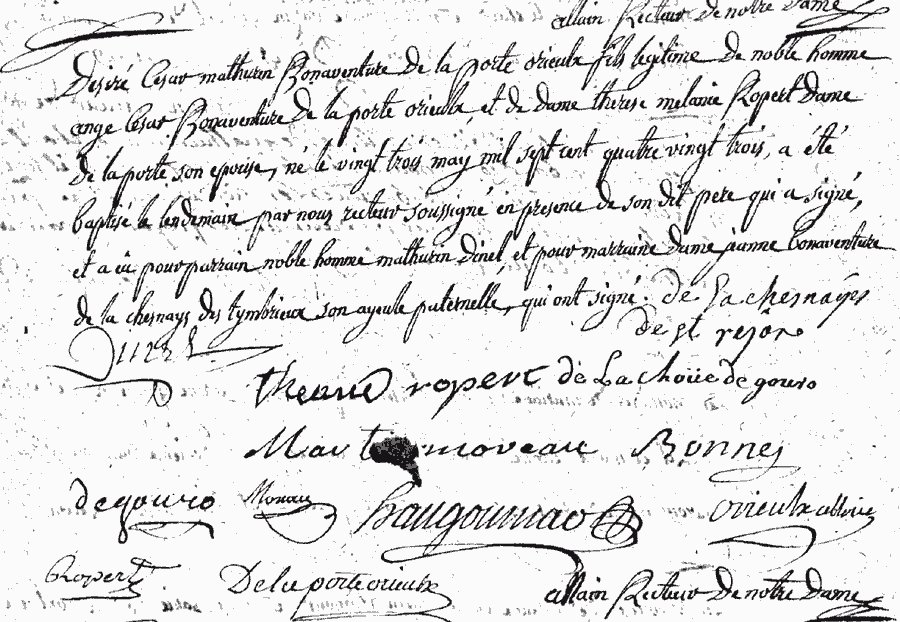 allain Recteur de notre Dame
Desiré Cesar mathurin Bonaventure de la porte orieulx fils legitime de noble homme
ange Cesar Bonaventure de la porte orieulx, et de dame therese melanie Ropert Dame
de la porte son epouse, né le vingt trois may mil sept cent quatre vingt trois, a été
baptisé le lendemain par nous recteur soussigné en presence de son dit pere qui a signé,
et a eu pour parrain noble homme mathurin dinel, et pour marraine dame jeanne bonaventure
de la chesnays des tymbrieux son ayeule paternelle, qui ont signé. de Lachesnays
de st rejon
Dinel
ropert de La choüe de gouro
moreau Bonnes
degouro Moreau orieulx
Ropert Delaporteorieulx allain Recteur De notre Dame